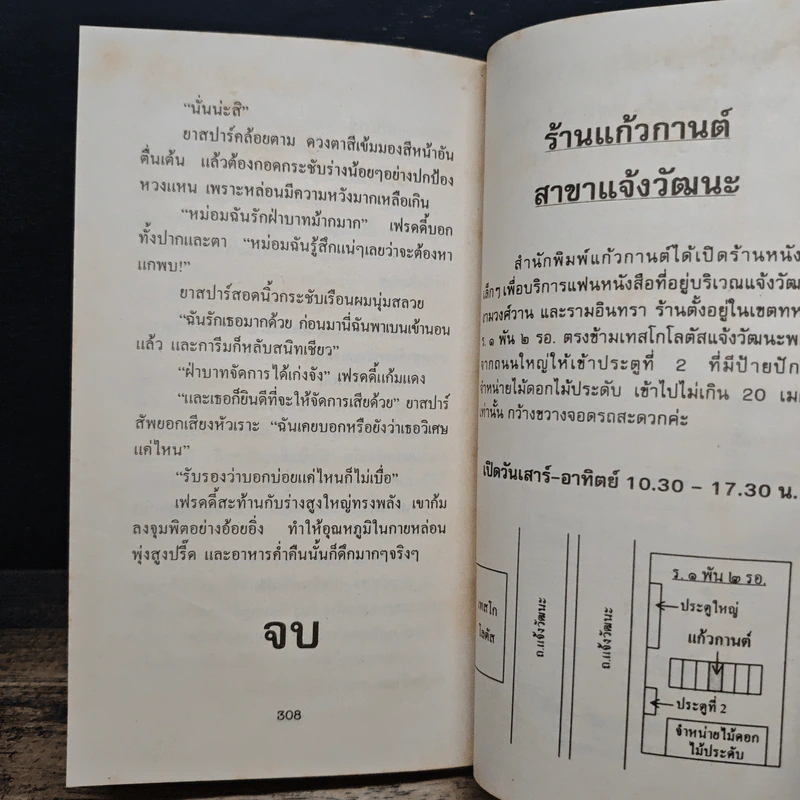 “นั่นน่ะสิ”
ยาสปาร์คล้อยตาม ดวงตาสีเข้มมองสีหน้าอัน
ตื่นเต้น แล้วต้องกอดกระชับร่างน้อยๆอย่างปกป้อง
หวงแหน เพราะหล่อนมีความหวังมากเหลือเกิน
“หม่อมฉันรักฝ่าบาทม้ากมาก” เฟรดดี้บอก
ทั้งปากและตา “หม่อมฉันรู้สึกแน่ๆเลยว่าจะต้องหา
แกพบ!”
ยาสปาร์สอดนิ้วกระชับเรือนผมนุ่มสลวย
“ฉันรักเธอมากด้วย ก่อนมานี่ฉันพาเบนเข้านอน
แล้ว และการีมก็หลับสนิทเชียว”
“ฝ่าบาทจัดการได้เก่งจัง” เฟรดดี้แก้มแดง
“และเธอก็ยินดีที่จะให้จัดการเสียด้วย” ยาสปาร์
สัพยอกเสียงหัวเราะ “ฉันเคยบอกหรือยังว่าเธอวิเศษ
แค่ไหน”
“รับรองว่าบอกบ่อยแค่ไหนก็ไม่เบื่อ”
เฟรดดี้สะท้านกับร่างสูงใหญ่ทรงพลัง เขาก้ม
ลงจุมพิตอย่างอ้อยอิ่ง ทำให้อุณหภูมิในกายหล่อน
พุ่งสูงปรี๊ด และอาหารค่ำคืนนั้นก็ดึกมากๆจริงๆ
จบ
308
ร้านแก้วกานต์
สาขาแจ้งวัฒนะ
สำนักพิมพ์แก้วกานต์ได้เปิดร้านหนัง
เล็กๆเพื่อบริการแฟนหนังสือที่อยู่บริเวณแจ้งวัฒ
งามวงศ์วาน และรามอินทรา ร้านตั้งอยู่ในเขตทห
ร.๑ พัน ๒ รอ. ตรงข้ามเทสโกโลตัสแจ้งวัฒนะพ
จากถนนใหญ่ให้เข้าประตูที่ 2 ที่มีป้ายปัก
จำหน่ายไม้ดอกไม้ประดับ เข้าไปไม่เกิน 20 เม
เท่านั้น กว้างขวางจอดรถสะดวกค่ะ
เปิดวันเสาร์-อาทิตย์ 10.30 - 17.30 น.
เทสโก
โลตัส
ถ.แจ้งวัฒนะ
ถ.แจ้งวัฒนะ
ร.๑ พัน ๒ รอ.
ประตูใหญ่
แก้วกานต์
ประตูที่ 2
จำหน่ายไม้ดอก
ไม้ประดับ